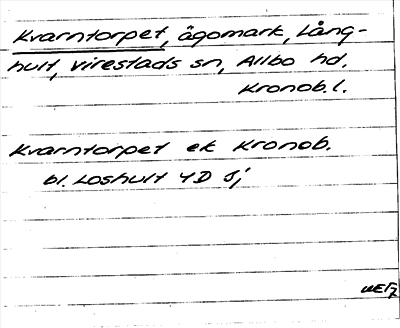 Kvarntorpet, ägomark, Lång-
hult, Virestads sn, Allbo hd,
Kronob. l.
Kvarntorpet ek Kronob.
bl. Loshult 4D Sj